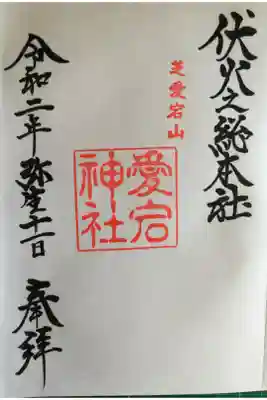 伏火之総本社
芝愛宕山
愛宕
神社
令和二年 弥生十一日 奉拝